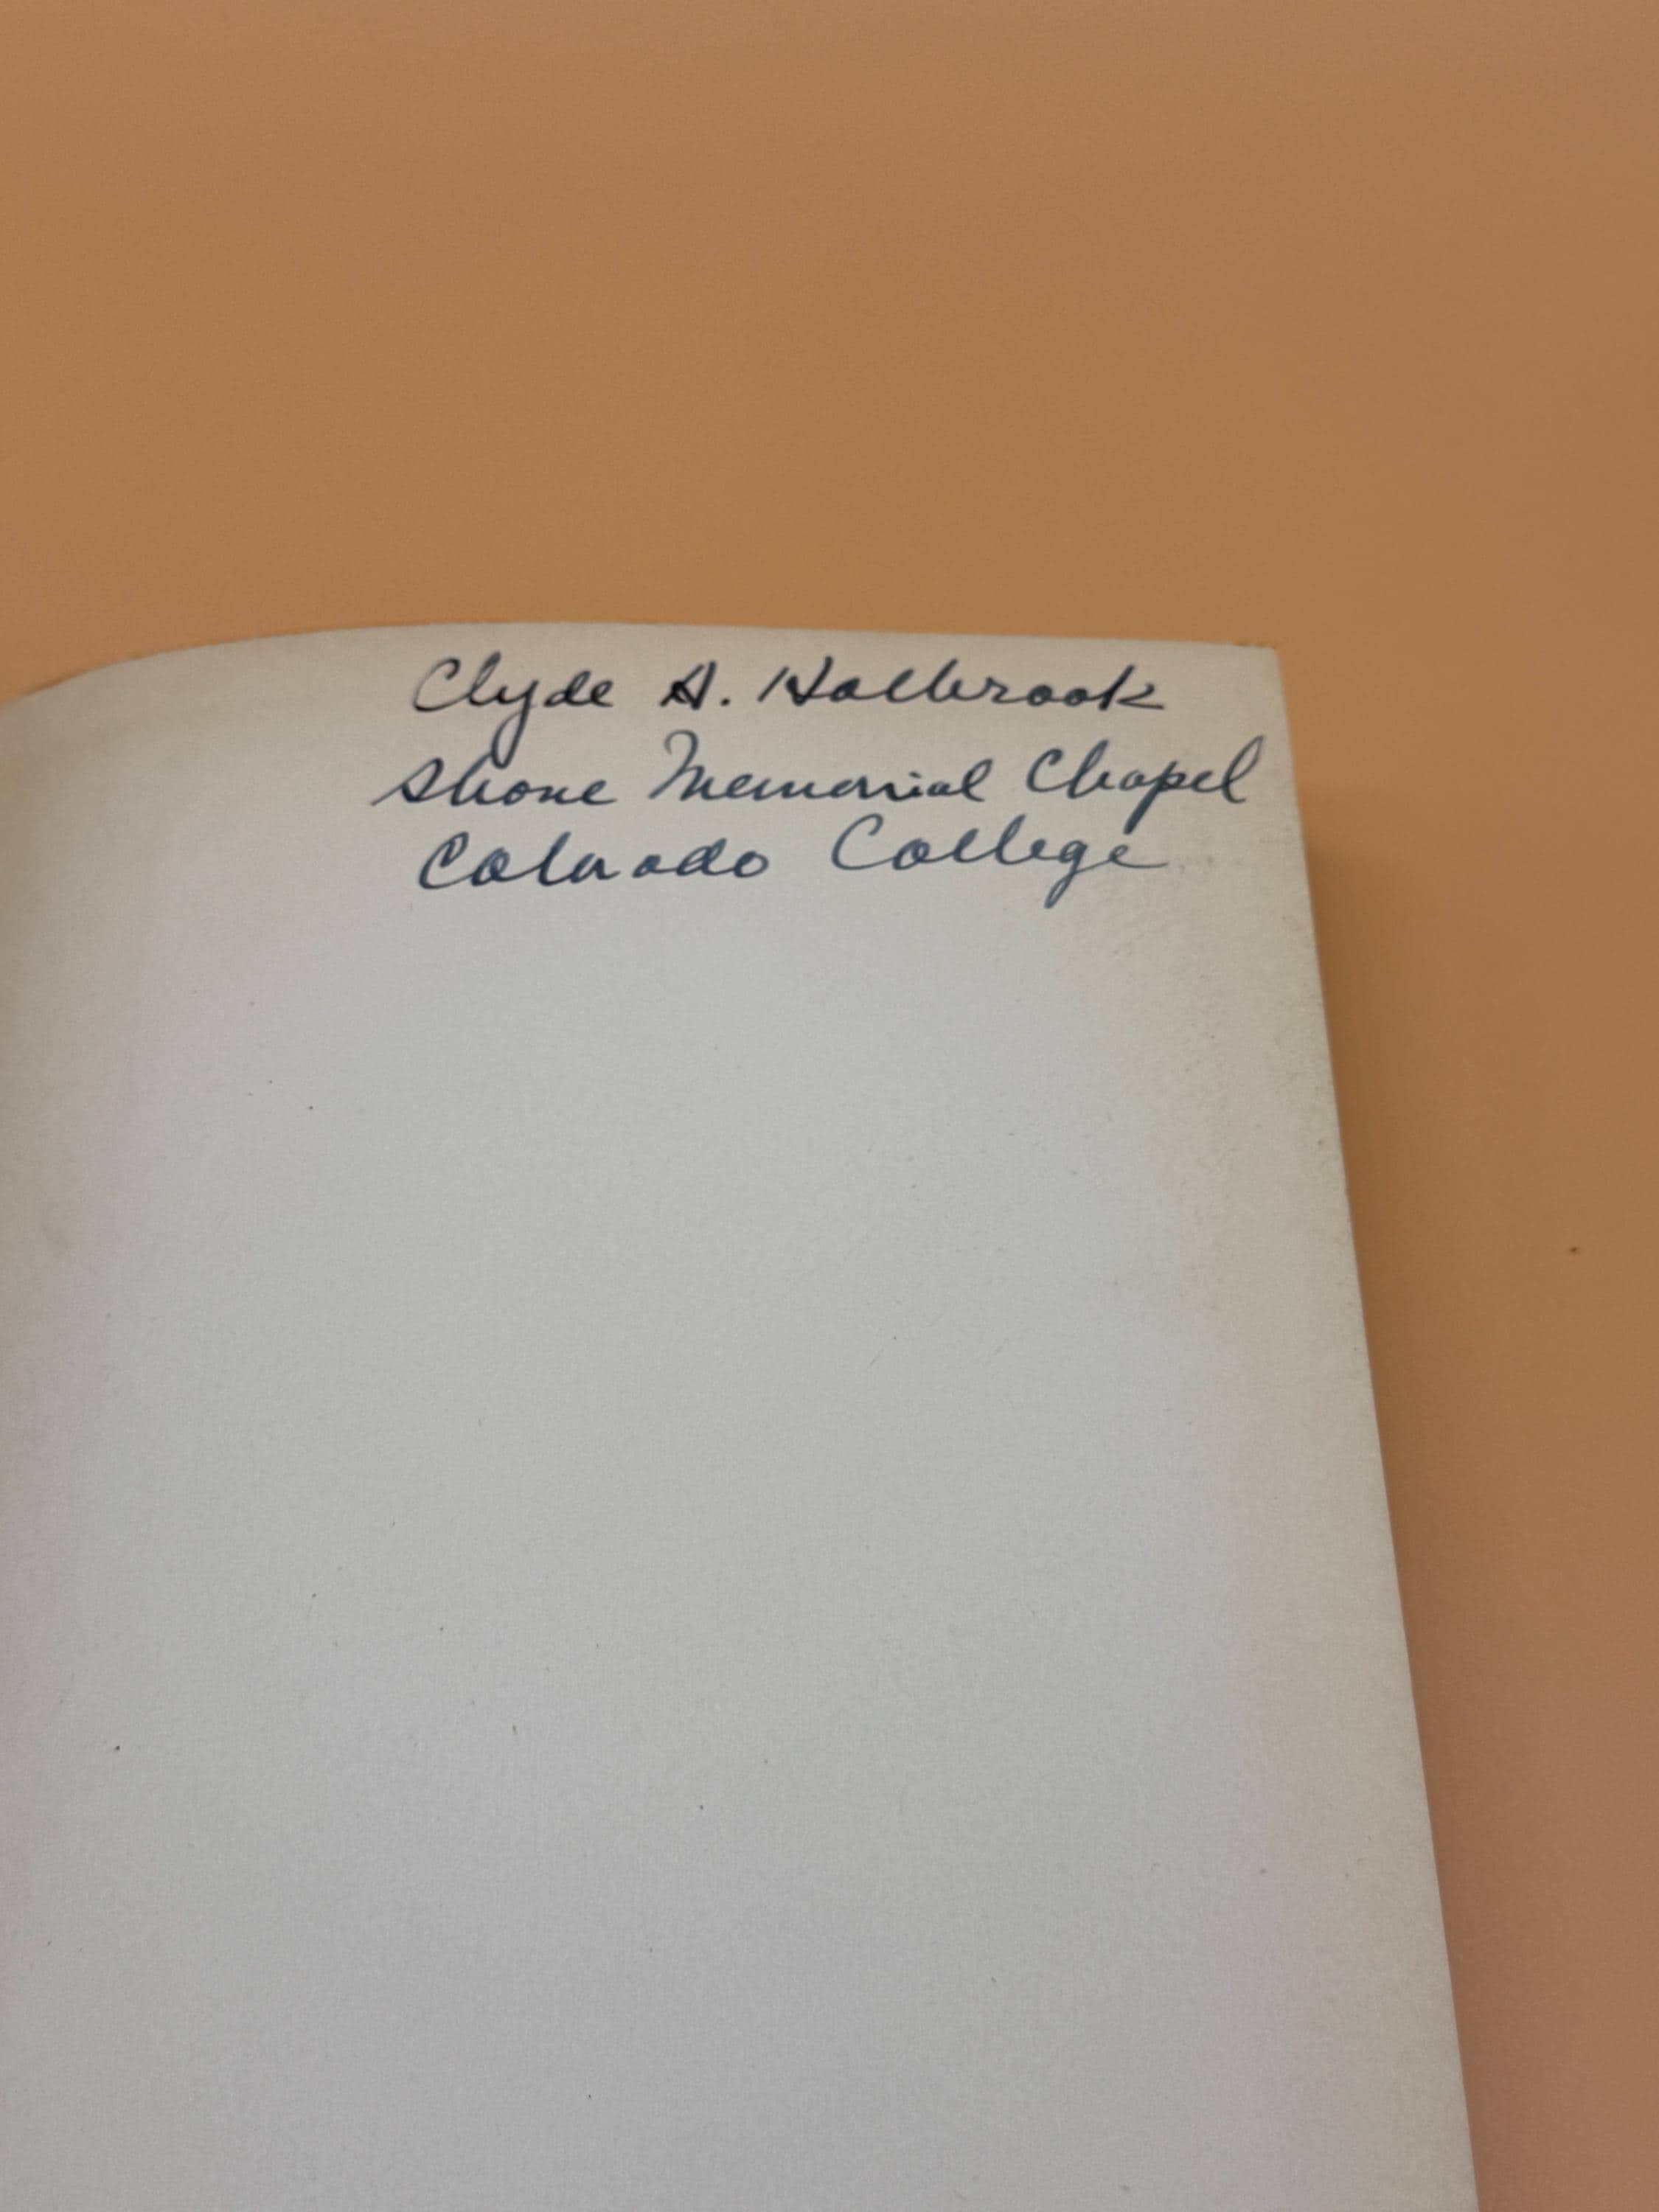 Clyde A. Holbrook
Shove Memorial Chapel
Colorado College